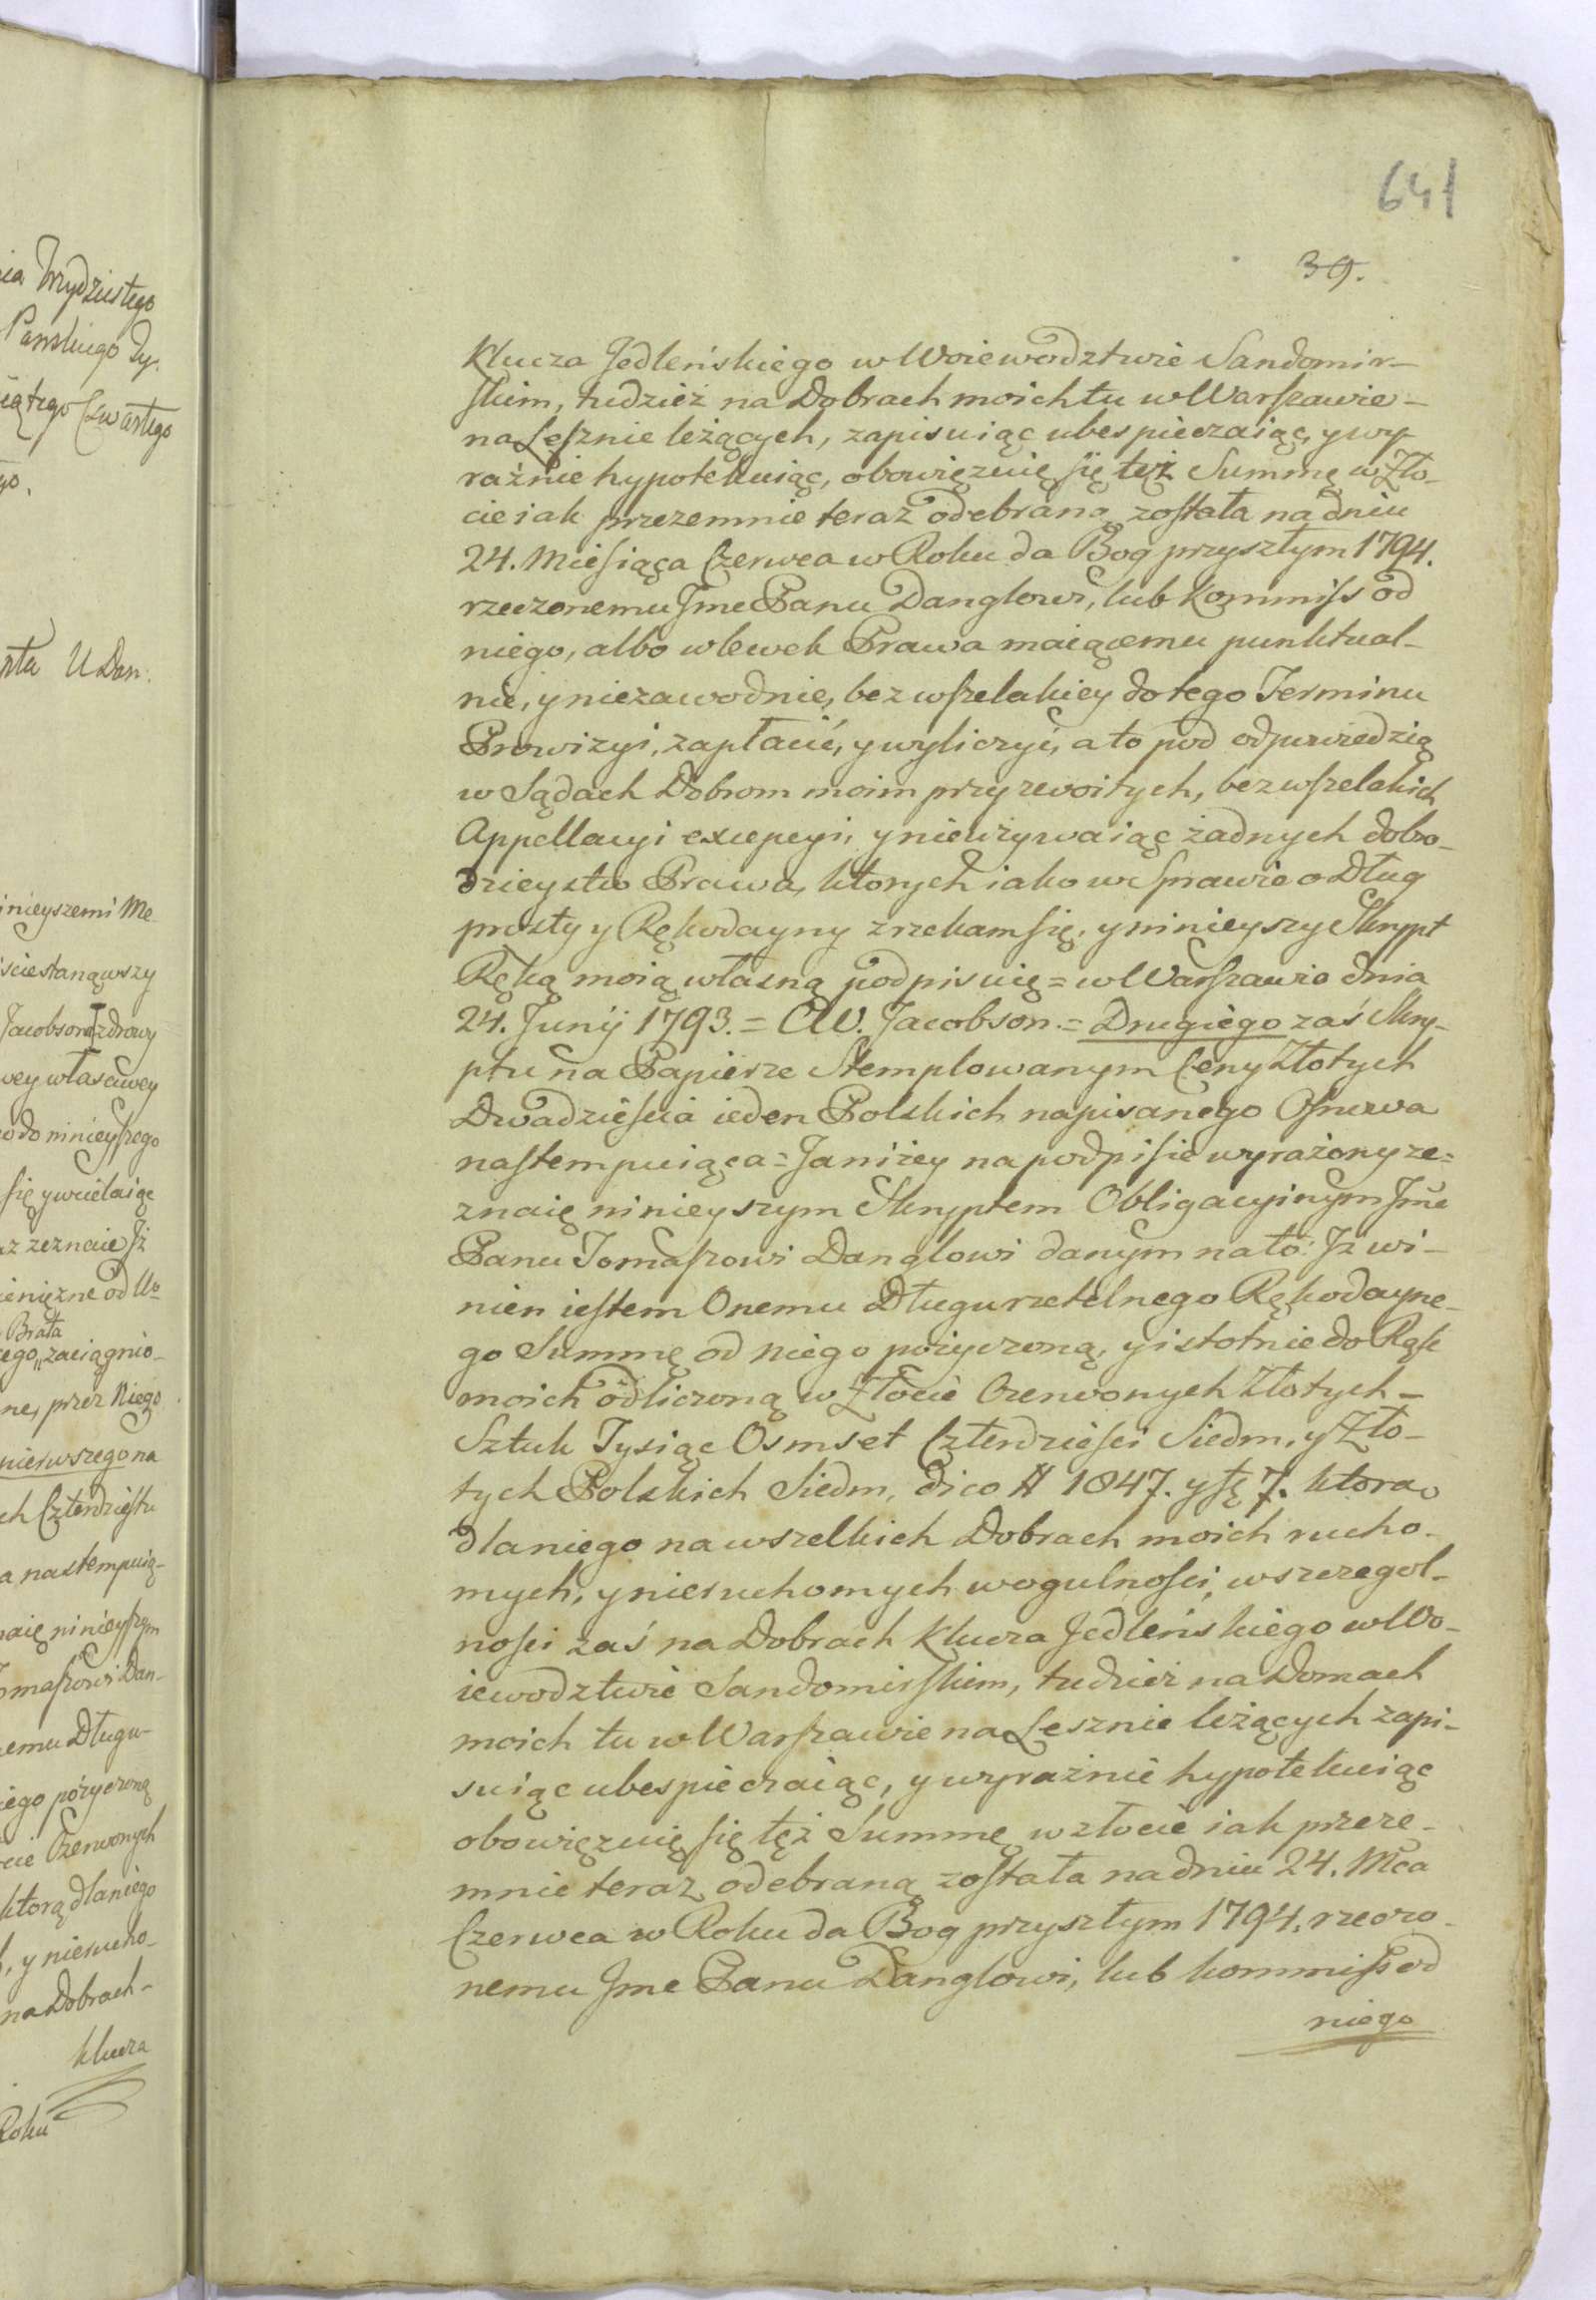 641
39.
Klucza Jedleńskiego w Woiewodztwie Sandomir-
skim, tudzież na Dobrach moich tu w Warszawie -
na Lesznie leżących, zapisuiąc ubespieczaiąc, y wy-
raźnie hypotekuiąc, obowięzuię się tęż Summę w Zło-
cie iak przezemnie teraz odebraną została na dniu
24. Miesiąca Czerwca w Roku da Bog przyszłym 1794.
rzeczonemu Jmc Panu Danglowi, lub Kommiss od
niego, albo wlewek Prawa maiącemu punktual-
nie, y niezawodnie, bez wszelakiey do tego Terminu
Prowizyi, zapłacić, y wyliczyć, a to pod odpowiedzią
w Sądach Dobrom moim przyzwoitych, bez wszelakich
Appellacyi excepcyi, y nieużywaiąc żadnych dobro-
dzieystw Prawa, ktorych iako w Sprawie o Dług
prosty y Rękodayny zrzekam się, y ninieyszy Skrypt
Ręką moią własną podpisuię = w Warszawie dnia
24. Junij 1793. = CW. Jacobson. = Drugiego zaś Skry-
ptu na Papierze Stemplowanym Ceny Złotych
Dwadzieścia ieden Polskich napisanego Osnowa
nastempuiąca = Ja niżey na podpisie wyrażony ze=
znaię ninieyszym Skryptem Obligacyinym Jmć
Panu Tomaszowi Danglowi danym na to: Jż wi-
nien iestem Onemu Długu rzetelnego Rękodayne-
go Summę od niego pożyczoną, y istotnie do Rąk
moich odliczoną w Złocie Czerwonych Złotych -
Sztuk Tysiąc Osmset Czterdzieści Siedm, y Zło-
tych Polskich Siedm, dico # 1847. y fł 7. ktorą
dla niego na wszelkich Dobrach moich rucho-
mych, y nieruchomych wogulności, w szczegol-
ności zaś na Dobrach Klucza Jedleńskiego w Wo-
iewodztwie Sandomirskim, tudzież na Domach
moich tu w Warszawie na Lesznie leżących zapi-
suiąc ubespieczaiąc, y wyraźnie hypotekuiąc
obowięzuię się tęż Summę w złocie iak przeze-
mnie teraz odebraną została na dniu 24. Mca
Czerwca w Roku da Bog przyszłym 1794. rzeczo-
nemu Jmc Panu Danglowi, lub kommiss od
niego